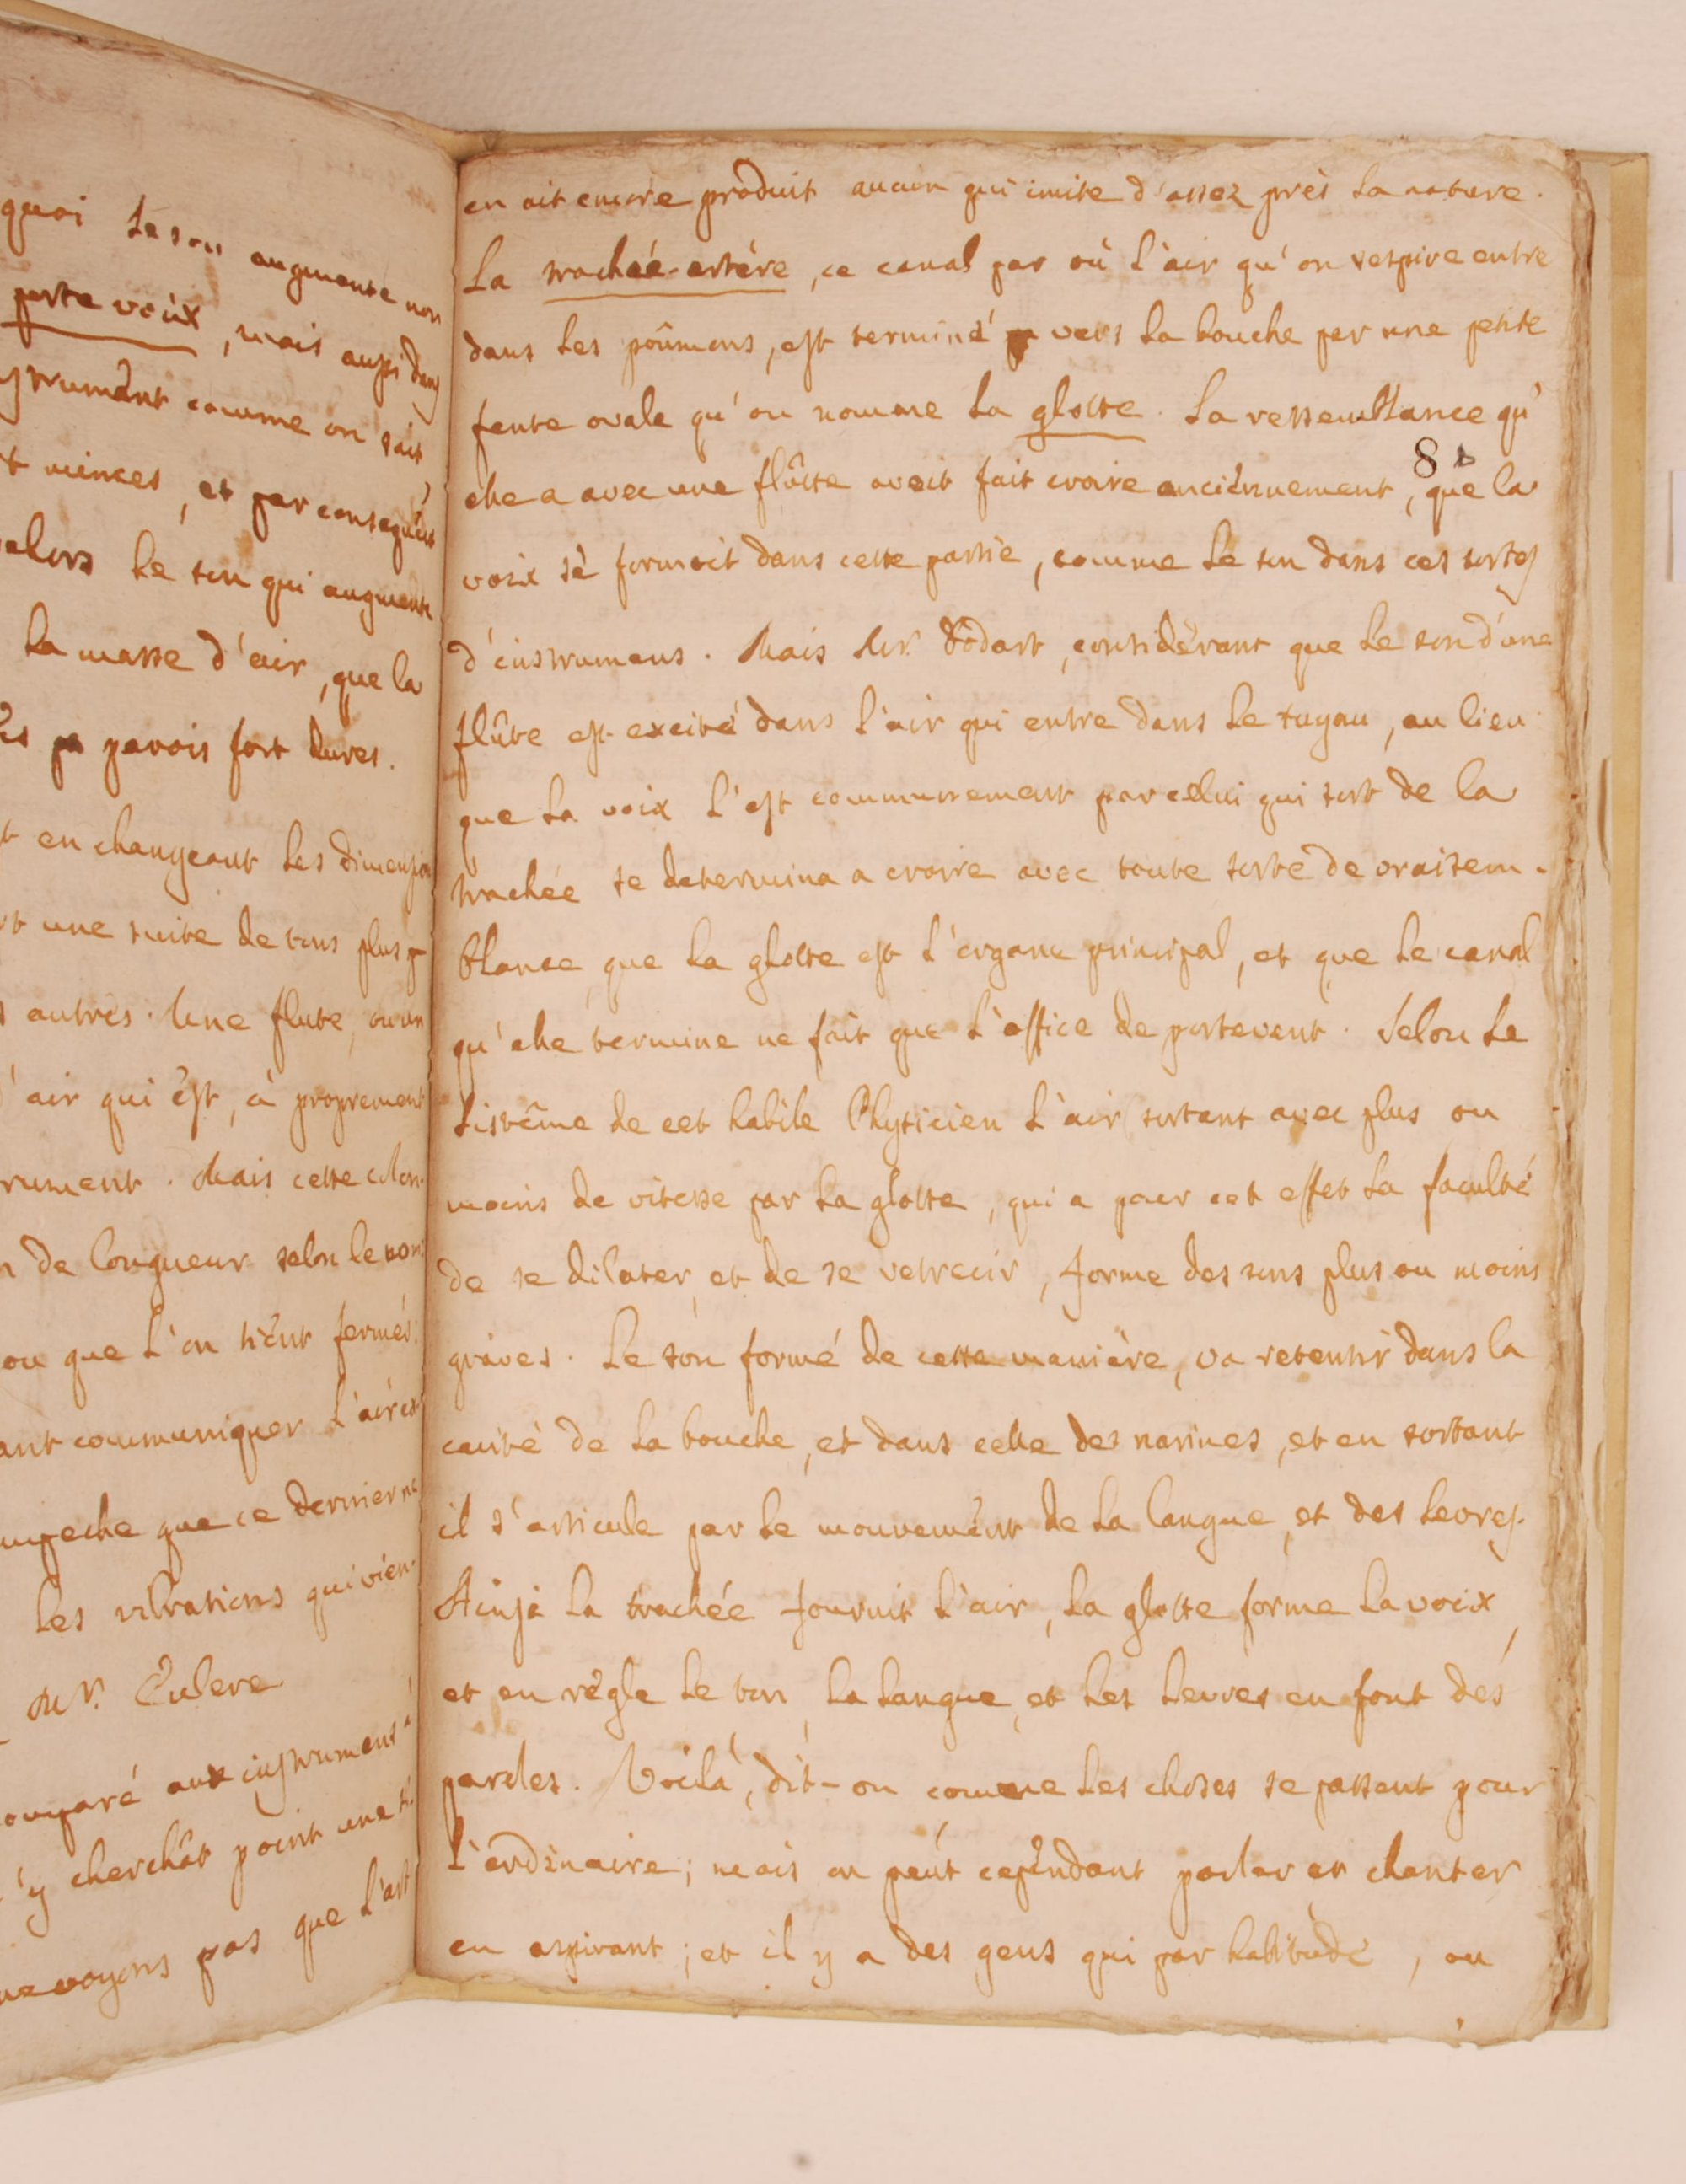 quoi le son augmente non
porte voix, mais aussi dans
strumênt comme on sait
t minces, et par conséquént
alors le son qui augmente
la masse d'air, que la
parois fort dures.
t en changeant les dimensions
une suite de tons plus
autrés. Une flute, ou un
'air qui ést, à proprement
rument. Mais cette colon-
n de longueur selon le nom-
ou que l'on tiént fermés.
ant communiquer l'air
mpeche que ce dernier ne
les vibrations qui vién-
Mr. Eulere
omparé aux instrumens
'y cherchât point une
ne voyons pas que l'art
en ait encore produit aucun qui imite d'assez près la nature.
La trachée-artère, ce canal par où l'air qu'on respire entre
dans les poûmons, est terminé vers la bouche par une petite
fente ovale qu'on nomme la glotte. La ressemblance qu'
8
elle a avec une flûtte avoit fait croire anciénnement, que la
voix sé formoit dans cette partie, comme le son dans ces sortes
d'instrumens. Mais Mr. Dodart, considérant que le son d'une
flûte est excité dans l'air qui entre dans le tuyau, au lieu
que la voix l'est communement par cellui qui sort de la
trachée se determina a croire avec toute sorte de vraisem-
blance, que la glotte est l'organe principal, et que le canal
qu'elle termine ne fait que l'office de portevent. Selon le
sistême de cet habile Physicien l'air sortant avec plus ou
moins de vitesse par la glotte, qui a pour cet effet la faculté
de se dilater, et de se retrecir, forme des sons plus ou moins
graves. Le són formé de cette manière, va retentir dans la
cavité de la bouche, et dans celle des narines, et en sortant
il s'articule par le mouvemént de la langue, et des levres.
Ainsi la trachée fournit l'air, la glotte forme la voix,
et en régle le ton, la langue, et les levrès en font dés
paroles. Voilá, dit-on, comme les choses se passent pour
l'ordinaire; mais on peút cepéndant parler et chanter
en aspirant; et il y a des gens qui par habitude, ou